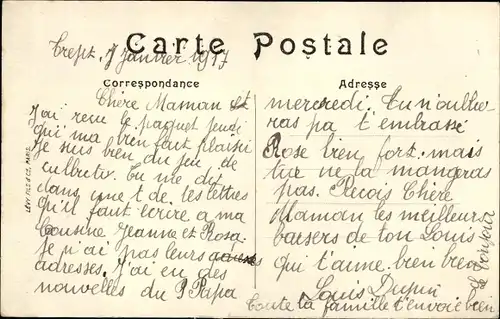 Carte Postale
Trept, 7 Janvier 1917
Correspondance
Chère Maman et
J'ai reçu le paquet jeudi
qui m'a bien fait plaisir
Je suis bien du jeu de
cubectiv. Tu me dit
dans une t de tes lettres
qu'il faut écrire a ma
Cousine Jeanne et Rosa.
Je n'ai pas leurs
adresses. J'ai eu des
nouvelles du P Papa
LÉVY FILS & Cie, PARIS
Adresse
mercredi. Tu n'oublie
ras pa t'embrassé
Rose bien fort. mais
tu ne la mangras
pas. Reçois Chère
Maman les meilleurs
baisers de ton Louis
qui t'aime bien bien
Louis Dupin
toute la famille t'envoie bien
le bonjour